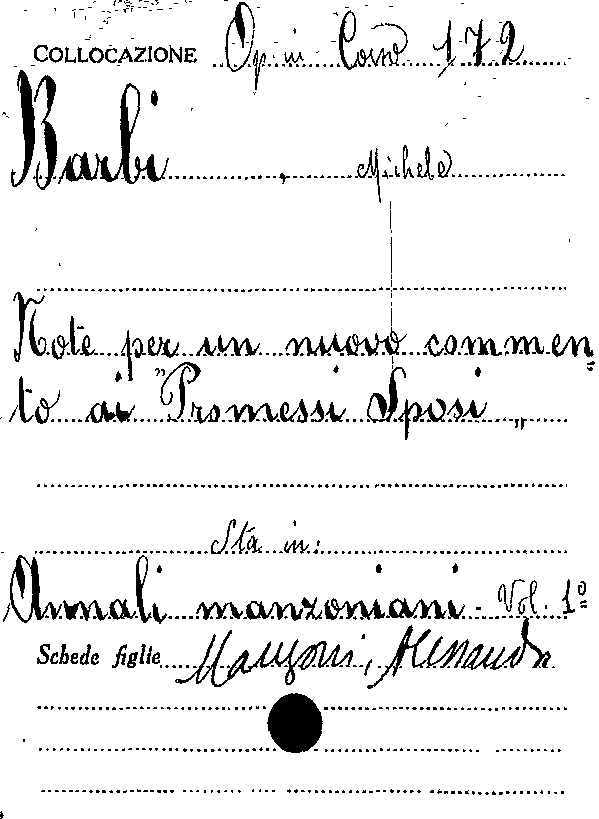 COLLOCAZIONE Op. in Cons 172
Barbi , Michele
Note per un nuovo commen=
to ai "Promessi Sposi"
Sta in:
Annali manzoniani - Vol. 1º
Schede figlie Manzoni, Alessandro